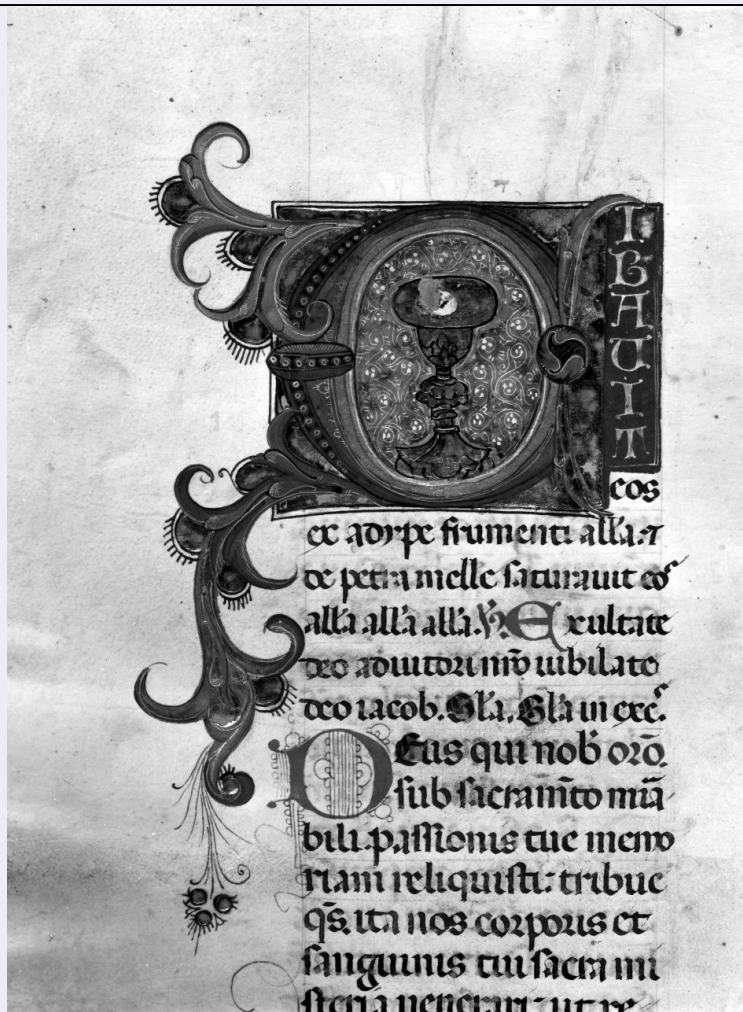 CIBAUIT
eos
ex adipe frumenti all'a. ⁊
de petra melle saturauit eos
all'a all'a all'a. ℣. Exultate
deo adiutori nr̄o iubilate
deo iacob. Gl'a. Gl'a in exc̄.
DEus qui nob̄ oro.
sub sacram̄to mīa
bili. passionis tue memo
riam reliquisti: tribue
q̄s. ita nos corporis et
sanguinis tui sacra mi
steria uenerari: ut re